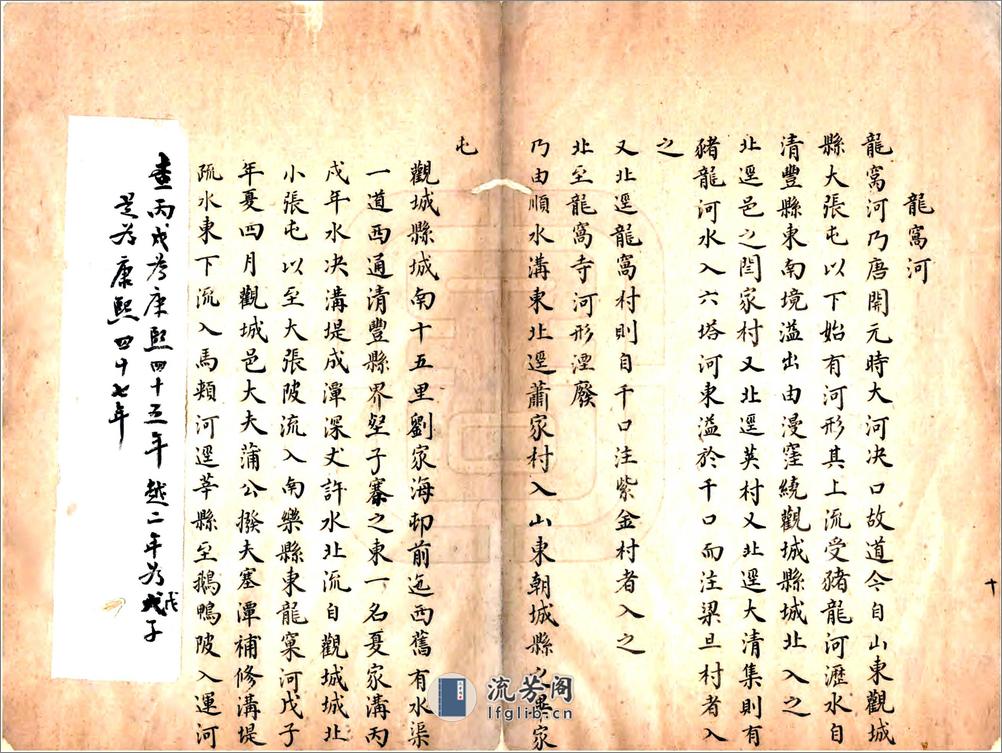 龍窩河
龍窩河乃唐開元時大河决口故道今自山東觀城
縣大張屯以下始有河形其上流受豬龍河瀝水自
清豐縣東南境溢出由漫窪繞觀城縣城北入之
北逕邑之閆家村又北逕英村又北逕大清集則有
豬龍河水入六塔河東溢於千口而注梁旦村者入
之
又北逕龍窩村則自千口注紫金村者入之
北至龍窩寺河形湮廢
乃由順水溝東北逕蕭家村入山東朝城縣家
屯
觀城縣城南十五里劉家海邨前迤西舊有水渠
一道西通清豐縣界堅子寨之東一名夏家溝丙
戌年水决溝堤成潭深丈許水北流自觀城城北
小張屯以至大張陂流入南樂縣東龍窠河戊子
年夏四月觀城邑大夫蒲公撥夫塞潭補修溝堤
疏水東下流入馬頰河逕莘縣至鵝鴨陂入運河
查丙戌為康熙四十五年越二年為戊子
是為康熙四十七年
十
流芳阁
lfglib.cn